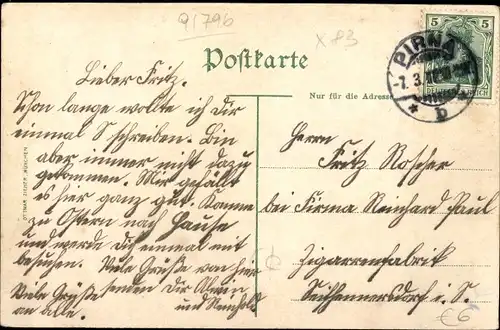 91796
X 83
5 5
REICH
PIRNA
-7.3.
* b *
Postkarte
Nur für die Adresse
Lieber Fritz.
Schon lange wollte ich Dir
einmal Schreiben. Bin
aber immer nicht dazu
gekommen. Mir gefällt
es hier ganz gut. Komme
zu Ostern nach Hause
und werde Dich einmal mit
besuchen. Viele Grüße von hier
senden Dir Alwin
und Reinhold
Viele Grüße
an alle.
Herrn
Fritz Roscher
bei Firma Reinhard Paul
Zigarrenfabrik
Seifhennersdorf i. S.
OTTMAR ZIEHER, MÜNCHEN
€6